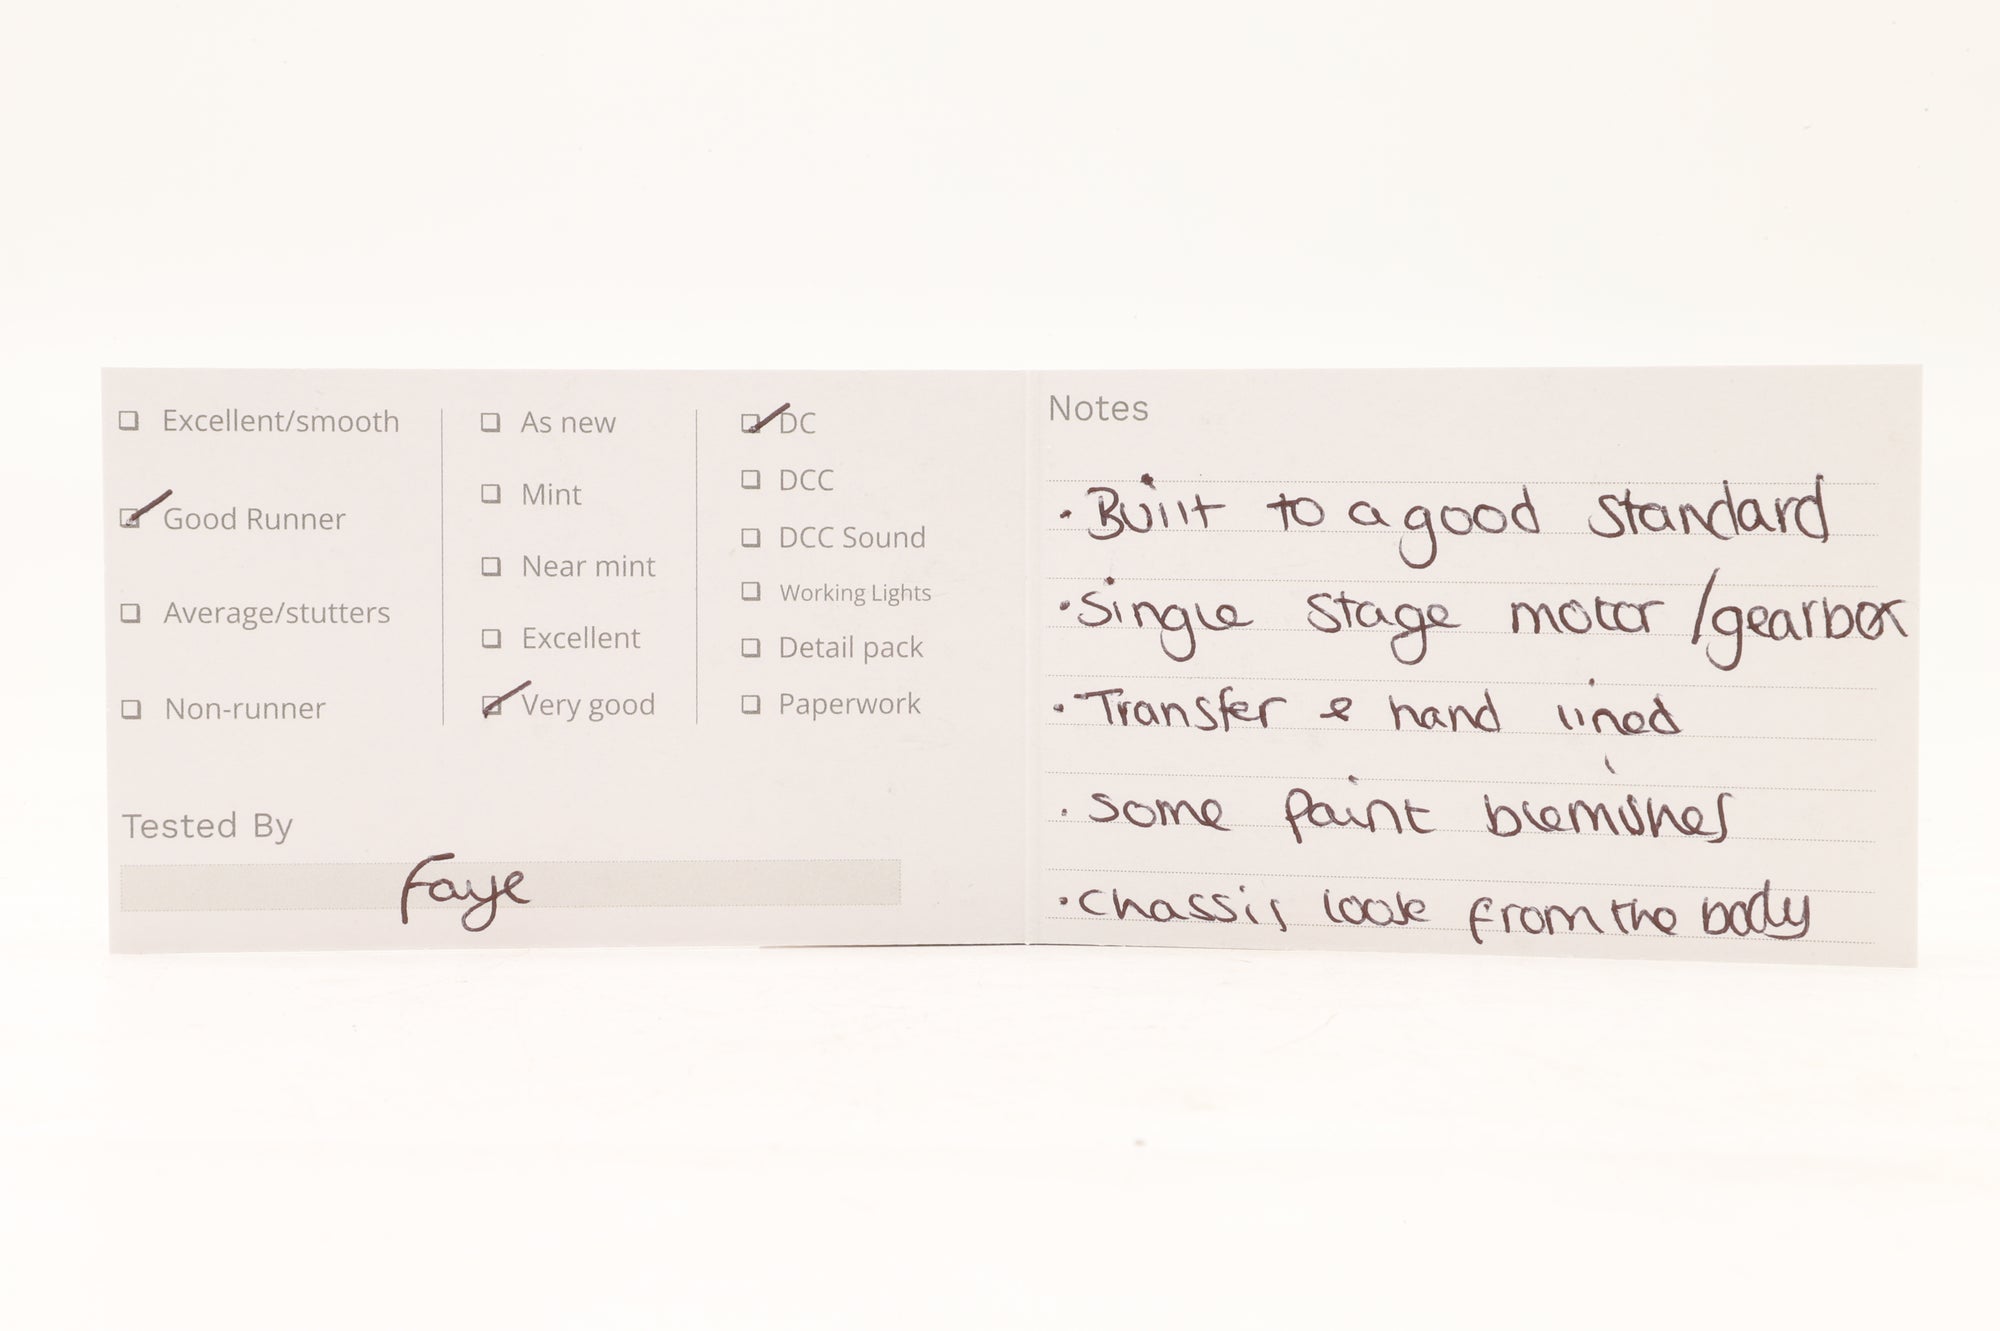 Excellent/smooth
Good Runner
Average/stutters
Non-runner
As new
Mint
Near mint
Excellent
Very good
DC
DCC
DCC Sound
Working Lights
Detail pack
Paperwork
Tested By
Faye
Notes
• Built to a good standard
• Single stage motor / gearbox
• Transfer & hand lined
• Some paint blemishes
• Chassis loose from the body